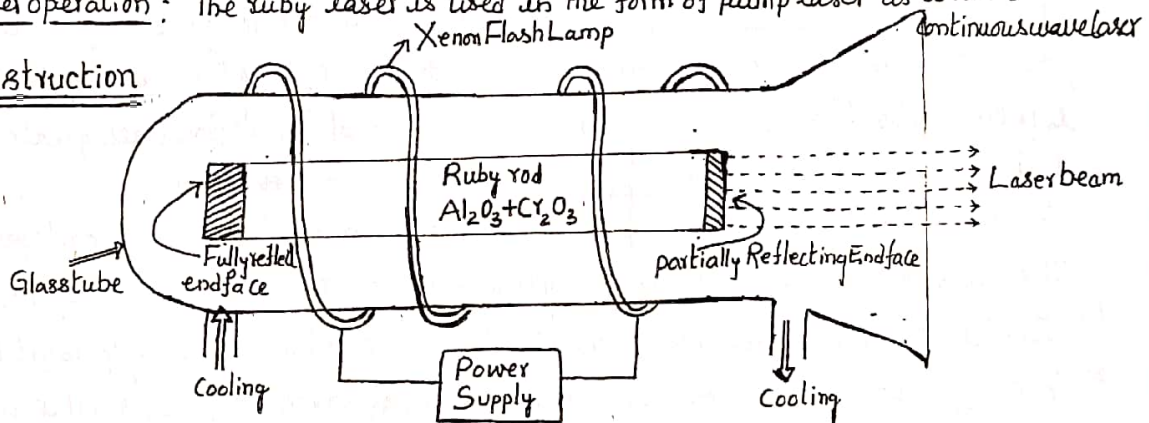 eroperation: The ruby laser is used in the form of pump laser as
continuouswavelaser
XenonFlashLamp
struction
Ruby rod
Al₂O₃+Cr₂O₃
Laserbeam
Glasstube
Fullyreflled
endface
partially ReflectingEndface
Cooling
Power
Supply
Cooling